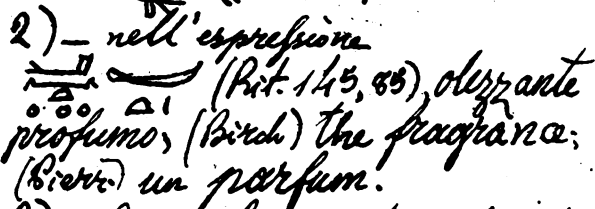 2) — nell'espressione
(Rit. 145, 85), olezzante
profumo, (Birch) the fragrance;
(Pierr.) un parfum.